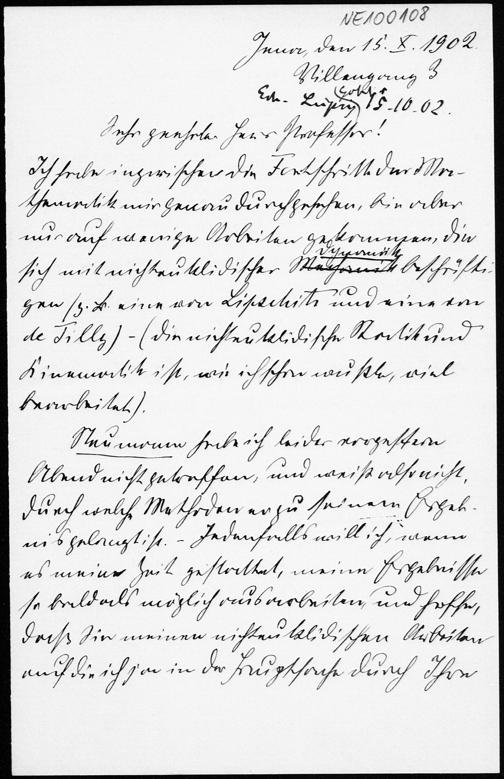 NE100108
Jena, den 15. X. 1902.
Villengang 3
15.10.02.
Sehr geehrter Herr Professor!
Ich habe inzwischen die Fortschritte der Ma-
thematik mir genau durchgesehen, bin aber
nur auf wenige Arbeiten gekommen, die
sich mit nichteuklidischer Dynamik beschäfti-
gen (z. B. eine von Lipschitz und eine von
de Tilly) – (die nichteuklidische Statik und
Kinematik ist, wie ich schon wußte, viel
bearbeitet).
Neumann habe ich leider vorgestern
Abend nicht getroffen, und weiß also nicht,
durch welche Methoden er zu seinem Ergeb-
nis gelangt ist. – Jedenfalls will ich, wenn
es meine Zeit gestattet, meine Ergebnisse
so bald als möglich ausarbeiten, und hoffe,
dass Sie meinen nichteuklidischen Arbeiten
auf die ich ja in der Hauptsache durch Ihre